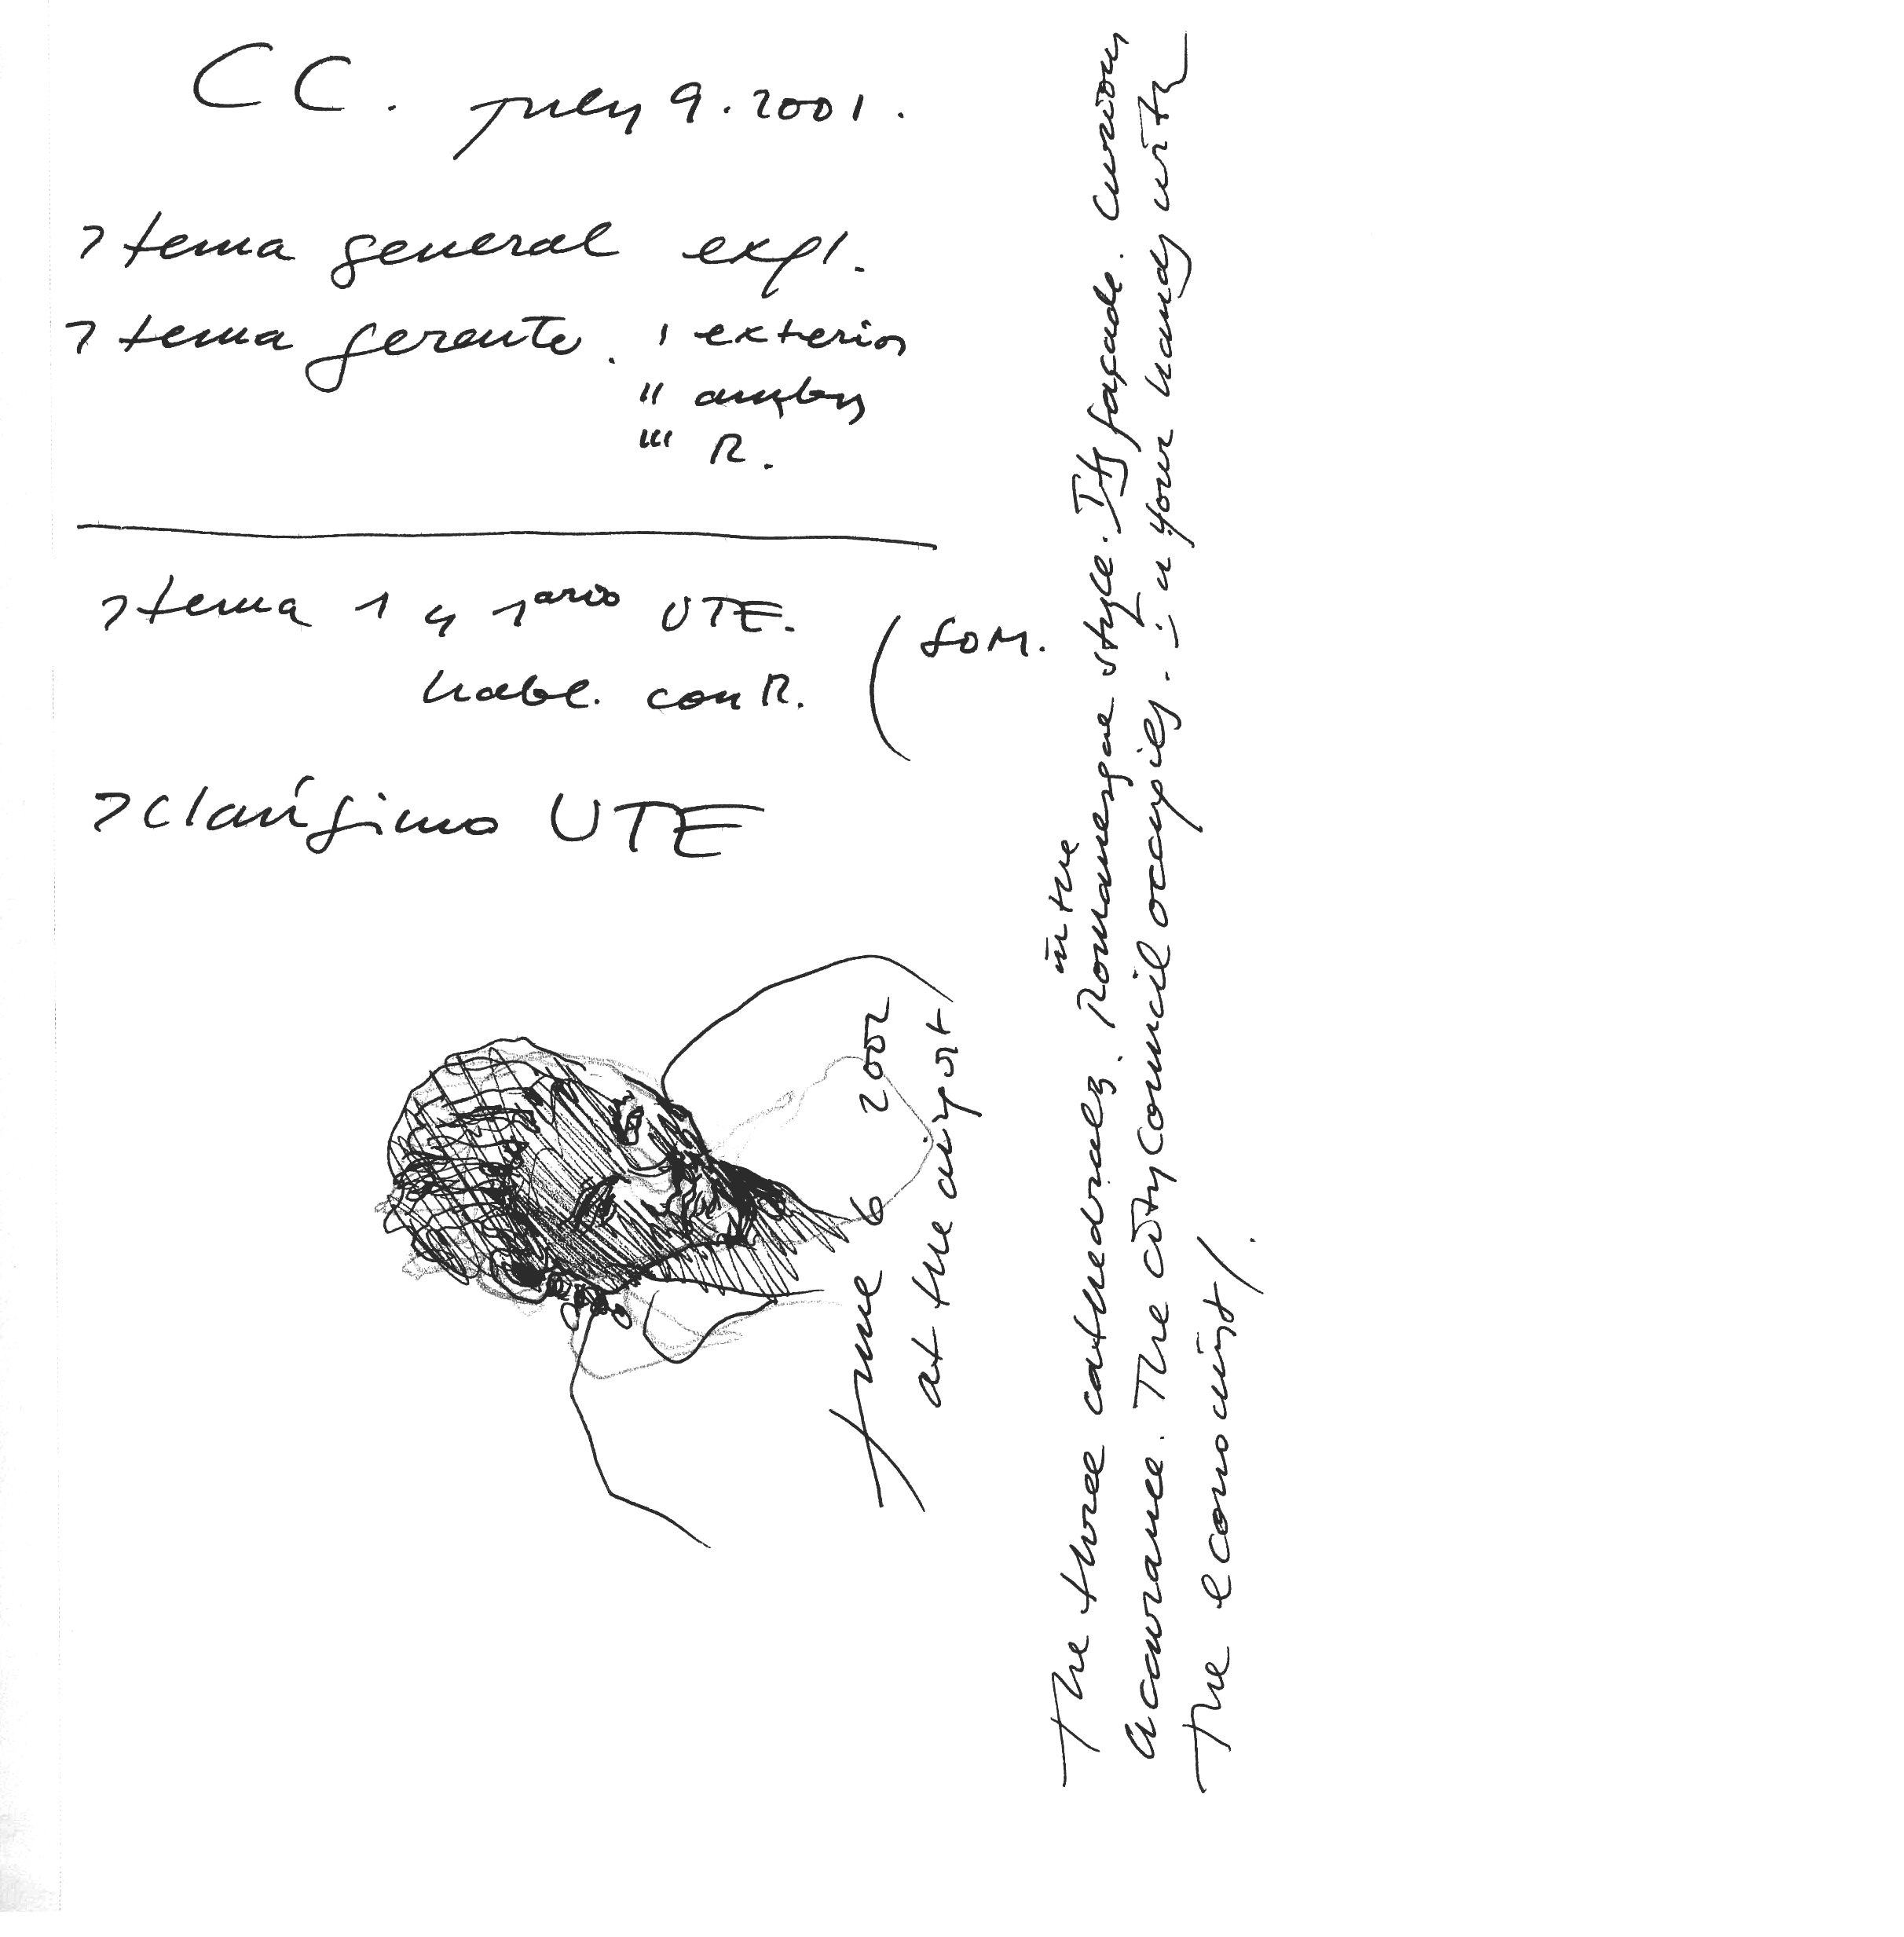 CC. July 9. 2001.
> tema general expl.
> tema gerente. ' exterior
" ambos
"' R.
> tema 1 y 1 UTE.
(SOM.
habl. con R.
> clarísimo UTE
June 6 2001
at the airport
in the
The three cathedrals. Romanesque style. Its façade. Curious
The city council occupies. in your hands with
the economist/.